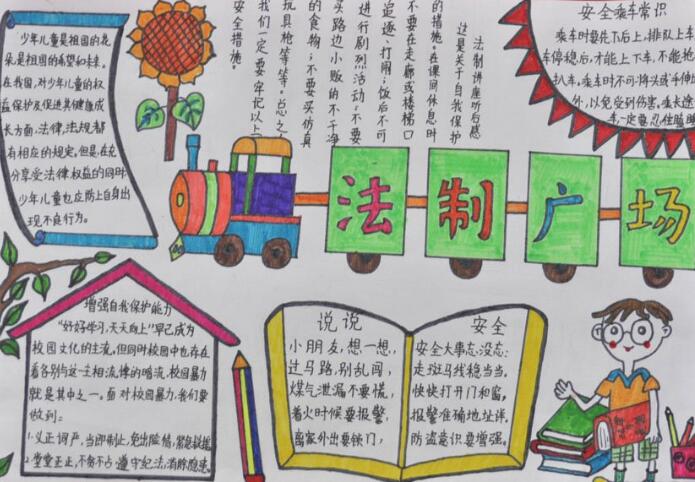 少年儿童是祖国的花
朵是祖国的希望和未来。
在我国,对少年儿童的权
益保护及促进其健康成
长方面,法律,法规都
有相应的规定,但是,在充
分享受法律权益的同时
少年儿童也应防止自身出
现不良行为。
法制讲座听后感
这是关于自我保护
的措施。在课间休息时
不要在走廊或楼梯口
追逐,打闹;饭后不可
进行剧烈活动;不要
买路边小贩的不干净
的食物;不要买仿真
玩具枪等等。总之
我们一定要牢记以上
安全措施。
安全乘车常识
乘车时要先下后上,排队上车
车停稳后,才能上下车,不能抢
扒车。乘车时不可将头或手伸
外,以免受到伤害。乘长途
车一定要忍住瞌睡
法制广场
增强自我保护能力
“好好学习,天天向上”早已成为
校园文化的主流,但同时校园中也存在
着各别与这一主相流悖的暗流,校园暴力
就是其中之一。面对校园暴力,我们要
做到:
1.义正词严,当即制止,免出险情,紧急救援
2.堂堂正正,不贪不占,遵守纪法,消除隐患
说说
小朋友,想一想,
过马路,别乱闯,
煤气泄漏不要慌,
着火时候要报警,
离家外出要锁门,
安全
安全大事忘没忘:
走斑马线稳当当。
快快打开门和窗,
报警准确地址详。
防盗意识要增强。